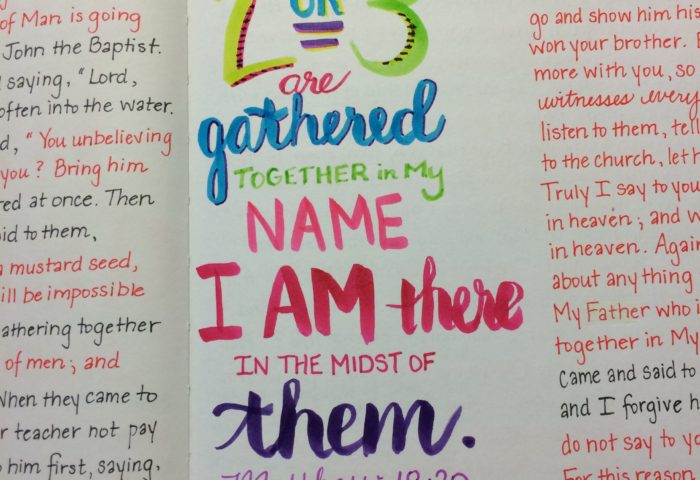 of Man is going
John the Baptist.
saying, “Lord,
often into the water.
“You unbelieving
you? Bring him
at once. Then
to them,
mustard seed,
ill be impossible
athering together
of men; and
When they came to
teacher not pay
him first, saying,
2 OR 3
are
gathered
TOGETHER in My
NAME
I AM there
IN THE MIDST OF
them.
Matthew 18:20
go and show him his
won your brother.
more with you, so
witnesses every
listen to them, tell
to the church, let h
Truly I say to you
in heaven; and w
in heaven. Again
about anything
My Father who i
together in My
Came and said to
and I forgive h
do not say to yo
For this reason